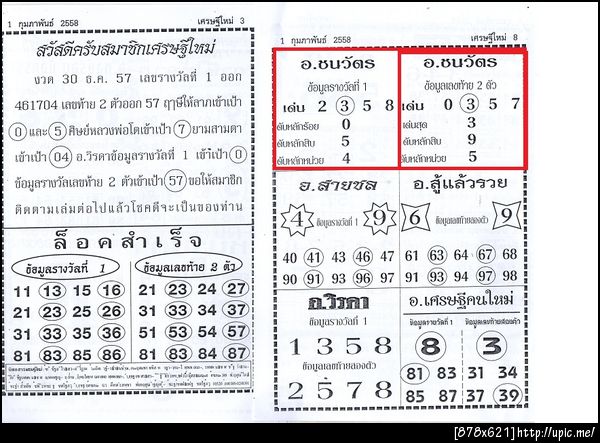 1 กุมภาพันธ์ 2558 เศรษฐีใหม่ 3
สวัสดีครับสมาชิกเศรษฐีใหม่
งวด 30 ธ.ค. 57 เลขรางวัลที่ 1 ออก
461704 เลขท้าย 2 ตัวออก 57 ฤๅษีให้ลาภเข้าเป้า
0 และ 5 ศิษย์หลวงพ่อโตเข้าเป้า 7 ยามสามตา
เข้าเป้า 04 อ.วิรดาข้อมูลรางวัลที่ 1 เข้าเป้า 0
ข้อมูลรางวัลเลขท้าย 2 ตัวเข้าเป้า 57 ขอให้สมาชิก
ติดตามเล่มต่อไปแล้วโชคดีจะเป็นของท่าน
ล็อคสำเร็จ
ข้อมูลรางวัลที่ 1 ข้อมูลเลขท้าย 2 ตัว
11 13 15 16 21 23 24 27
21 23 25 26 31 33 34 37
31 33 35 36 51 53 54 57
81 83 85 86 81 83 84 87
1 กุมภาพันธ์ 2558 เศรษฐีใหม่ 8
อ.ชนวัตร
ข้อมูลรางวัลที่ 1
เด่น 2 3 5 8
ดับหลักร้อย 0
ดับหลักสิบ 5
ดับหลักหน่วย 4
อ.ชนวัตร
ข้อมูลเลขท้าย 2 ตัว
เด่น 0 3 5 7
เด่นสุด 3
ดับหลักสิบ 9
ดับหลักหน่วย 5
อ.สายชล
4 ข้อมูลรางวัลที่ 1 9
40 41 43 46 47
90 91 93 96 97
อ.สู้แล้วรวย
6 ข้อมูลเลขท้ายสองตัว 9
61 63 64 67 68
91 93 94 97 98
อ.วิรดา
ข้อมูลรางวัลที่ 1
1 3 5 8
ข้อมูลเลขท้ายสองตัว
2 5 7 8
อ.เศรษฐีคนใหม่
ข้อมูลรางวัลที่ 1 ข้อมูลเลขท้ายสองตัว
8 3
81 83 31 34
85 87 37 39
[878x621]http://upic.me/